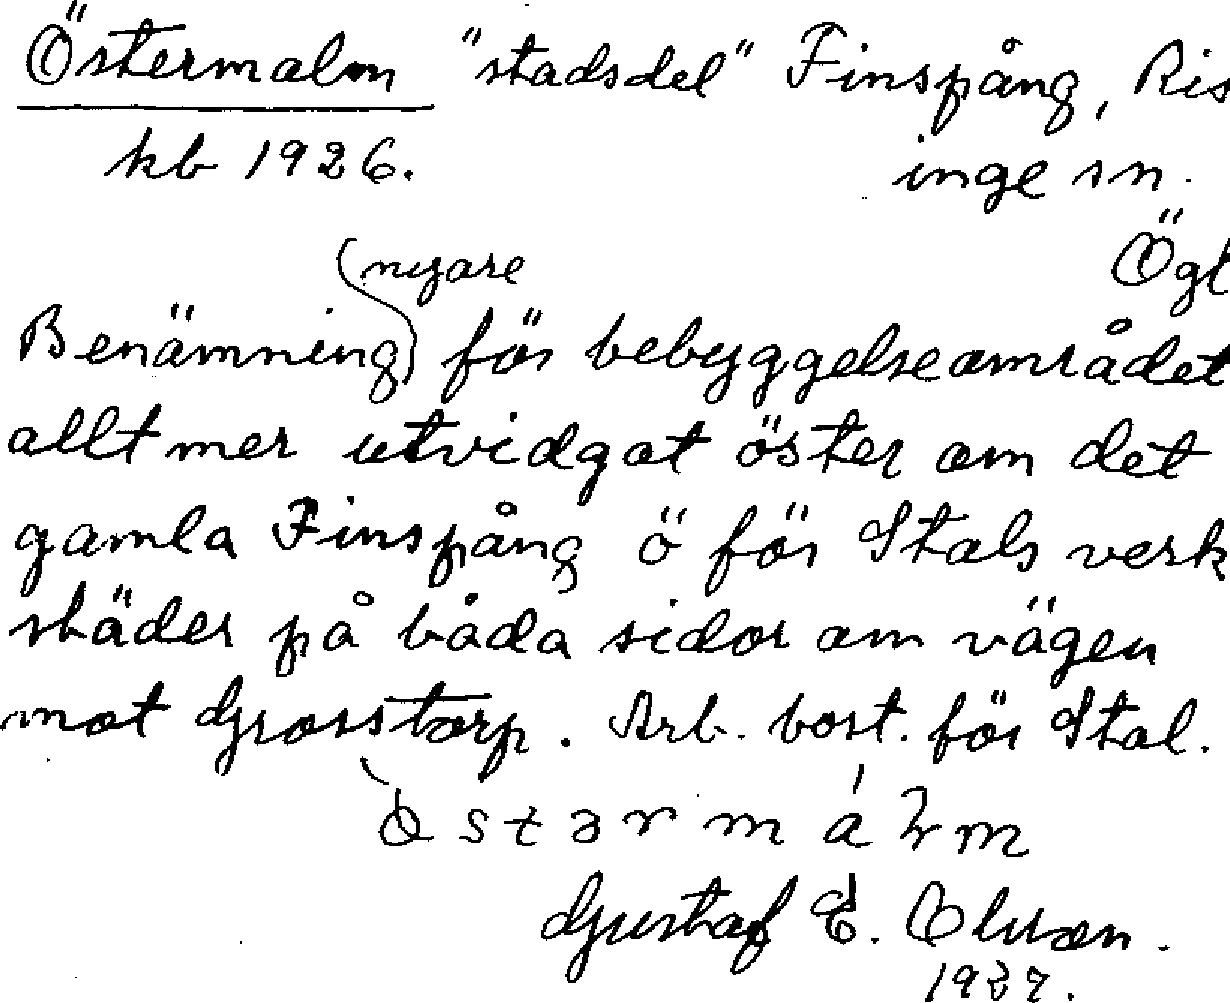 Östermalm "stadsdel" Finspång, Ris
kb 1926. inge sn.
Ögl
nyare
Benämning för bebyggelseområdet
allt mer utvidgat öster om det
gamla Finspång ö för Stals verk
städer på båda sidor om vägen
mot Grosstorp. Arb. bost. för Stal.
Gustaf E. Olsson.
1927.